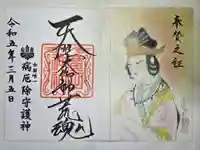 奉登之証
天照大御神荒魂
病厄除守護神
令和五年三月五日